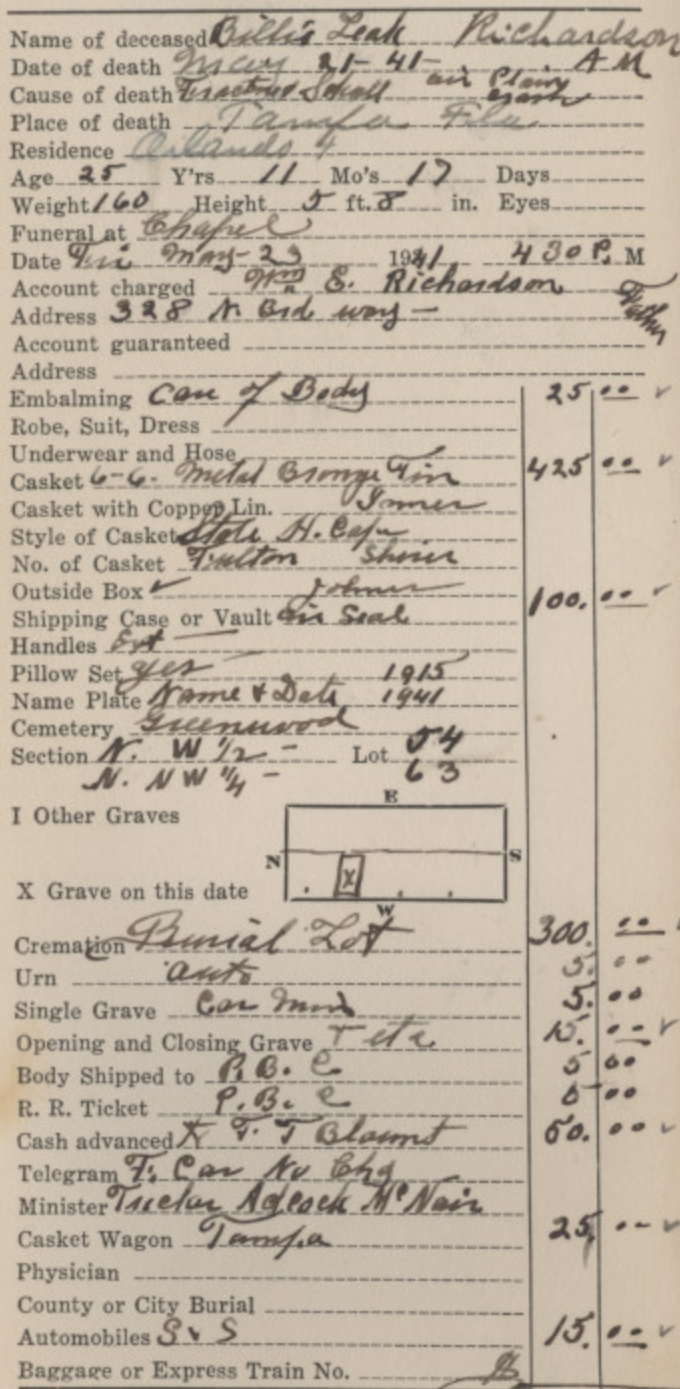 Name of deceased Billie Leak Richardson
Date of death May 21- 41- A M
Cause of death Fractured Skull air Plain crash
Place of death Tampa Fla
Residence Orlando
Age 25 Y'rs 11 Mo's 17 Days
Weight 160 Height 5 ft. 8 in. Eyes
Funeral at Chapel
Date Fri May- 23 1941 4 30 P. M
Account charged Wm E. Richardson Father
Address 328 N. Brd way -
Account guaranteed
Address
Embalming Care of Body 25 00
Robe, Suit, Dress
Underwear and Hose
Casket 6-6. Metal Bronze Fin 425 00
Casket with Copper Lin. Inner
Style of Casket State H. Cape
No. of Casket Fulton
Outside Box ✓
Shipping Case or Vault air Seal 100. 00
Handles Ext
Pillow Set yes 1915
Name Plate Name & Date 1941
Cemetery Greenwood
Section N. W 1/2 - Lot 54
N. NW 1/4 - 63
I Other Graves
E
N S
X
X Grave on this date
W
Cremation Burial Lot 300. 00
Urn auto 5. 00
Single Grave Car 5. 00
Opening and Closing Grave T etc 15. 00
Body Shipped to P. B. C 5 00
R. R. Ticket P. B. C 5 00
Cash advanced F. T Blount 50. 00
Telegram F. Car No Chg
Minister Tucker Adcock McNair
Casket Wagon Tampa 25 00
Physician
County or City Burial
Automobiles S & S 15. 00
Baggage or Express Train No.